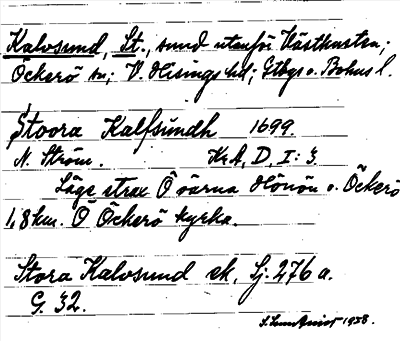 Kalvsund, St., sund utanför Västkusten;
Öckerö sn; V. Hisings hd; Gtbgs o. Bohus l.
Stoora Kalfsundh 1699.
N. Ström. KrA, D. I: 3
Läge strax Ö öarna Hönön o. Öckerö
1,8 km. Ö Öckerö kyrka.
Stora Kalvsund ek, Sj. 276 a.
G. 32.
1938.